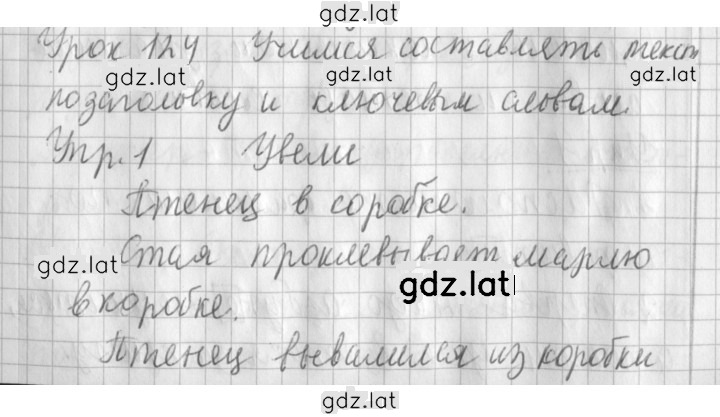 gdz.lat
Урок 124 Учимся составлять текст
gdz.lat gdz.lat gdz.lat
по заголовку и ключевым словам.
Упр. 1 Увели
Птенец в соробке.
Стая проклевывает марлю
gdz.lat
gdz.lat
в коробке.
Птенец вывалился из коробки
gdz.lat